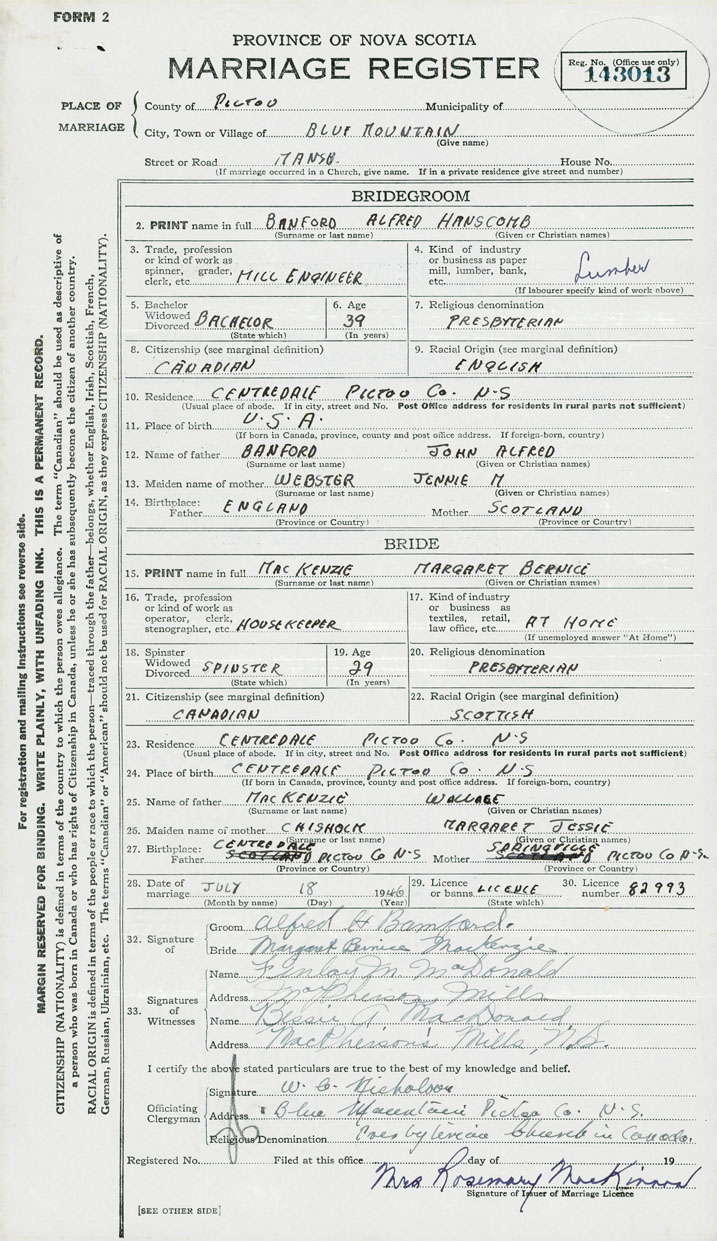 FORM 2
PROVINCE OF NOVA SCOTIA
MARRIAGE REGISTER
Reg. No. (Office use only)
143013
PLACE OF MARRIAGE
County of PICTOU Municipality of
City, Town or Village of BLUE MOUNTAIN
(Give name)
Street or Road MANSE House No.
(If marriage occurred in a Church, give name. If in a private residence give street and number)
BRIDEGROOM
2. PRINT name in full BANFORD ALFRED HANSCOMB
(Surname or last name) (Given or Christian names)
3. Trade, profession or kind of work as spinner, grader, clerk, etc. MILL ENGINEER
4. Kind of industry or business as paper mill, lumber, bank, etc. Lumber
(If labourer specify kind of work above)
5. Bachelor Widowed Divorced BACHELOR
(State which)
6. Age 39
(In years)
7. Religious denomination
PRESBYTERIAN
8. Citizenship (see marginal definition)
CANADIAN
9. Racial Origin (see marginal definition)
ENGLISH
10. Residence CENTREDALE PICTOU Co. N-S
(Usual place of abode. If in city, street and No. Post Office address for residents in rural parts not sufficient)
11. Place of birth U.S.A.
(If born in Canada, province, county and post office address. If foreign-born, country)
12. Name of father BANFORD JOHN ALFRED
(Surname or last name) (Given or Christian names)
13. Maiden name of mother WEBSTER JENNIE M
(Surname or last name) (Given or Christian names)
14. Birthplace: Father ENGLAND Mother SCOTLAND
(Province or Country) (Province or Country)
BRIDE
15. PRINT name in full MAC KENZIE MARGARET BERNICE
(Surname or last name) (Given or Christian names)
16. Trade, profession or kind of work as operator, clerk, stenographer, etc. HOUSEKEEPER
17. Kind of industry or business as textiles, retail, law office, etc. AT HOME
(If unemployed answer "At Home")
18. Spinster Widowed Divorced SPINSTER
(State which)
19. Age 29
(In years)
20. Religious denomination
PRESBYTERIAN
21. Citizenship (see marginal definition)
CANADIAN
22. Racial Origin (see marginal definition)
SCOTTISH
23. Residence CENTREDALE PICTOU Co. N-S
(Usual place of abode. If in city, street and No. Post Office address for residents in rural parts not sufficient)
24. Place of birth CENTREDALE PICTOU Co. N-S
(If born in Canada, province, county and post office address. If foreign-born, country)
25. Name of father MAC KENZIE WALLACE
(Surname or last name) (Given or Christian names)
26. Maiden name of mother CHISHOLM MARGARET JESSIE
(Surname or last name) (Given or Christian names)
27. Birthplace: Father CENTREDALE SCOTLAND PICTOU Co N-S Mother SPRINGVILLE SCOTLAND PICTOU Co N-S.
(Province or Country) (Province or Country)
28. Date of marriage JULY 18 1946
(Month by name) (Day) (Year)
29. Licence or banns LICENCE
(State which)
30. Licence number 82993
32. Signature of
Groom Alfred H Bamford.
Bride Margaret Bernice MacKenzie
33. Signatures of Witnesses
Name Finlay M McDonald
Address MacPherson Mills
Name Bessie A MacDonald
Address MacPherson's Mills, N.S.
I certify the above stated particulars are true to the best of my knowledge and belief.
Officiating Clergyman
Signature W. C. Nicholson
Address Blue Mountain Pictou Co. N.S.
Religious Denomination Presbyterian Church in Canada.
Registered No. Filed at this office day of 19
Mrs Rosemary MacKinnon
Signature of Issuer of Marriage Licence
[SEE OTHER SIDE]
For registration and mailing instructions see reverse side.
MARGIN RESERVED FOR BINDING. WRITE PLAINLY, WITH UNFADING INK. THIS IS A PERMANENT RECORD.
CITIZENSHIP (NATIONALITY) is defined in terms of the country to which the person owes allegiance. The term "Canadian" should be used as descriptive of
a person who was born in Canada or who has rights of Citizenship in Canada, unless he or she has subsequently become the citizen of another country.
RACIAL ORIGIN is defined in terms of the people or race to which the person—traced through the father—belongs, whether English, Irish, Scottish, French,
German, Russian, Ukrainian, etc. The terms "Canadian" or "American" should not be used for RACIAL ORIGIN, as they express CITIZENSHIP (NATIONALITY).